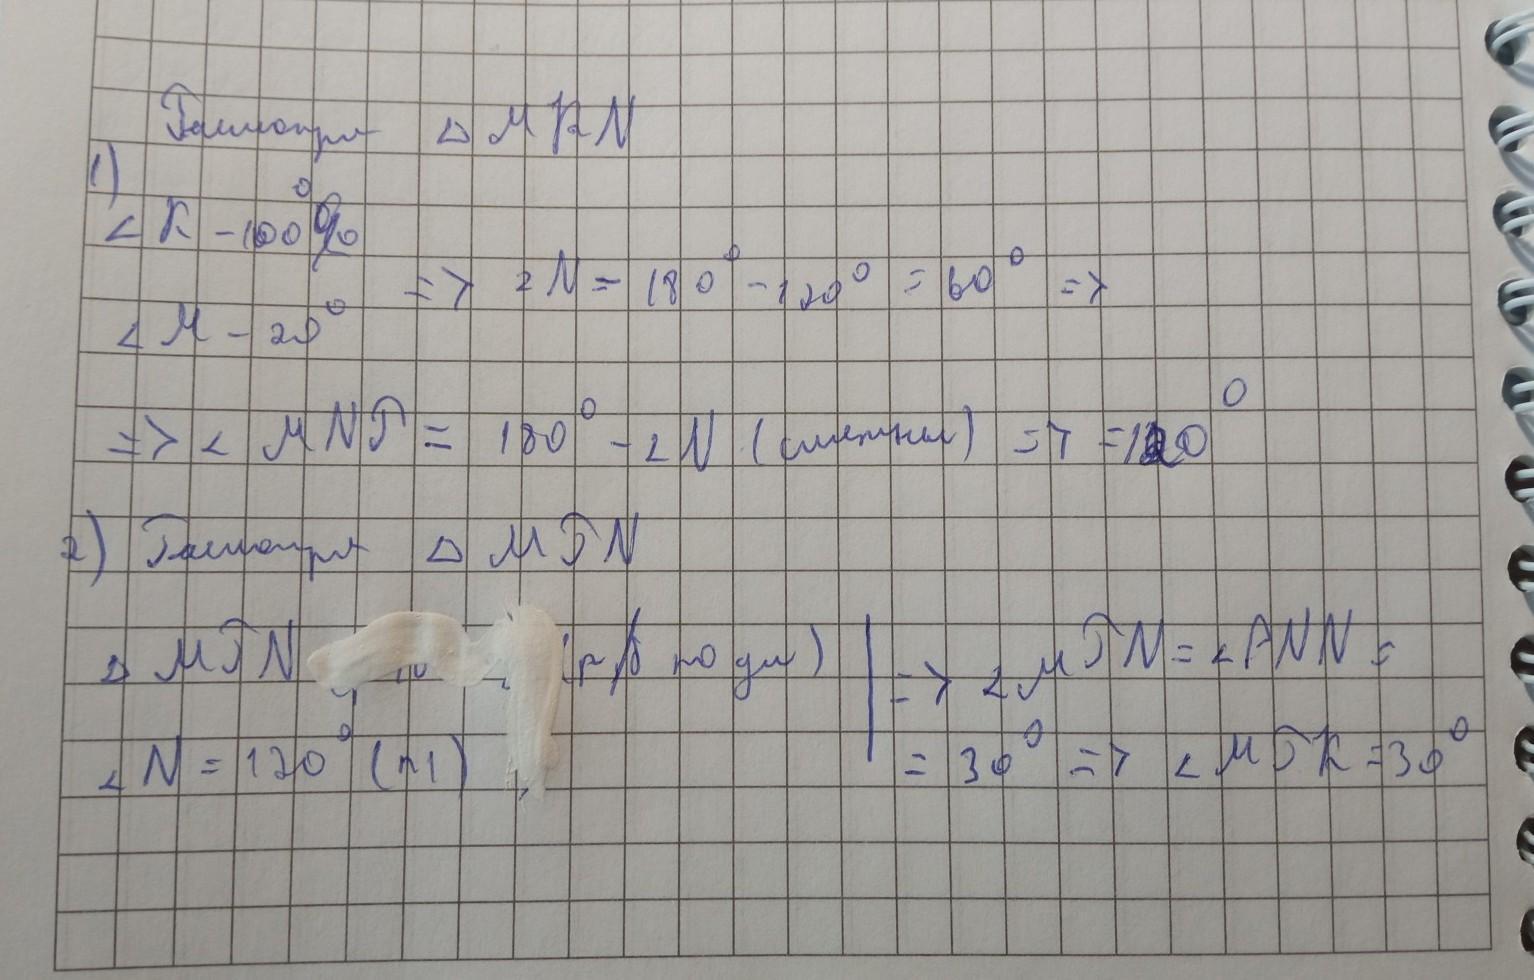 Рассмотрим △ MKN
1)
∠ K - 100°
∠ M - 20°
=> ∠N = 180° - 120° = 60° =>
=> ∠ MNP = 180° - ∠N (смежные) => = 120°
2) Рассмотрим △ MPN
△ MPN (р/б по усл)
∠ N = 120° (п1)
=> ∠MPN = ∠PNN =
= 30° => ∠MPK = 30°